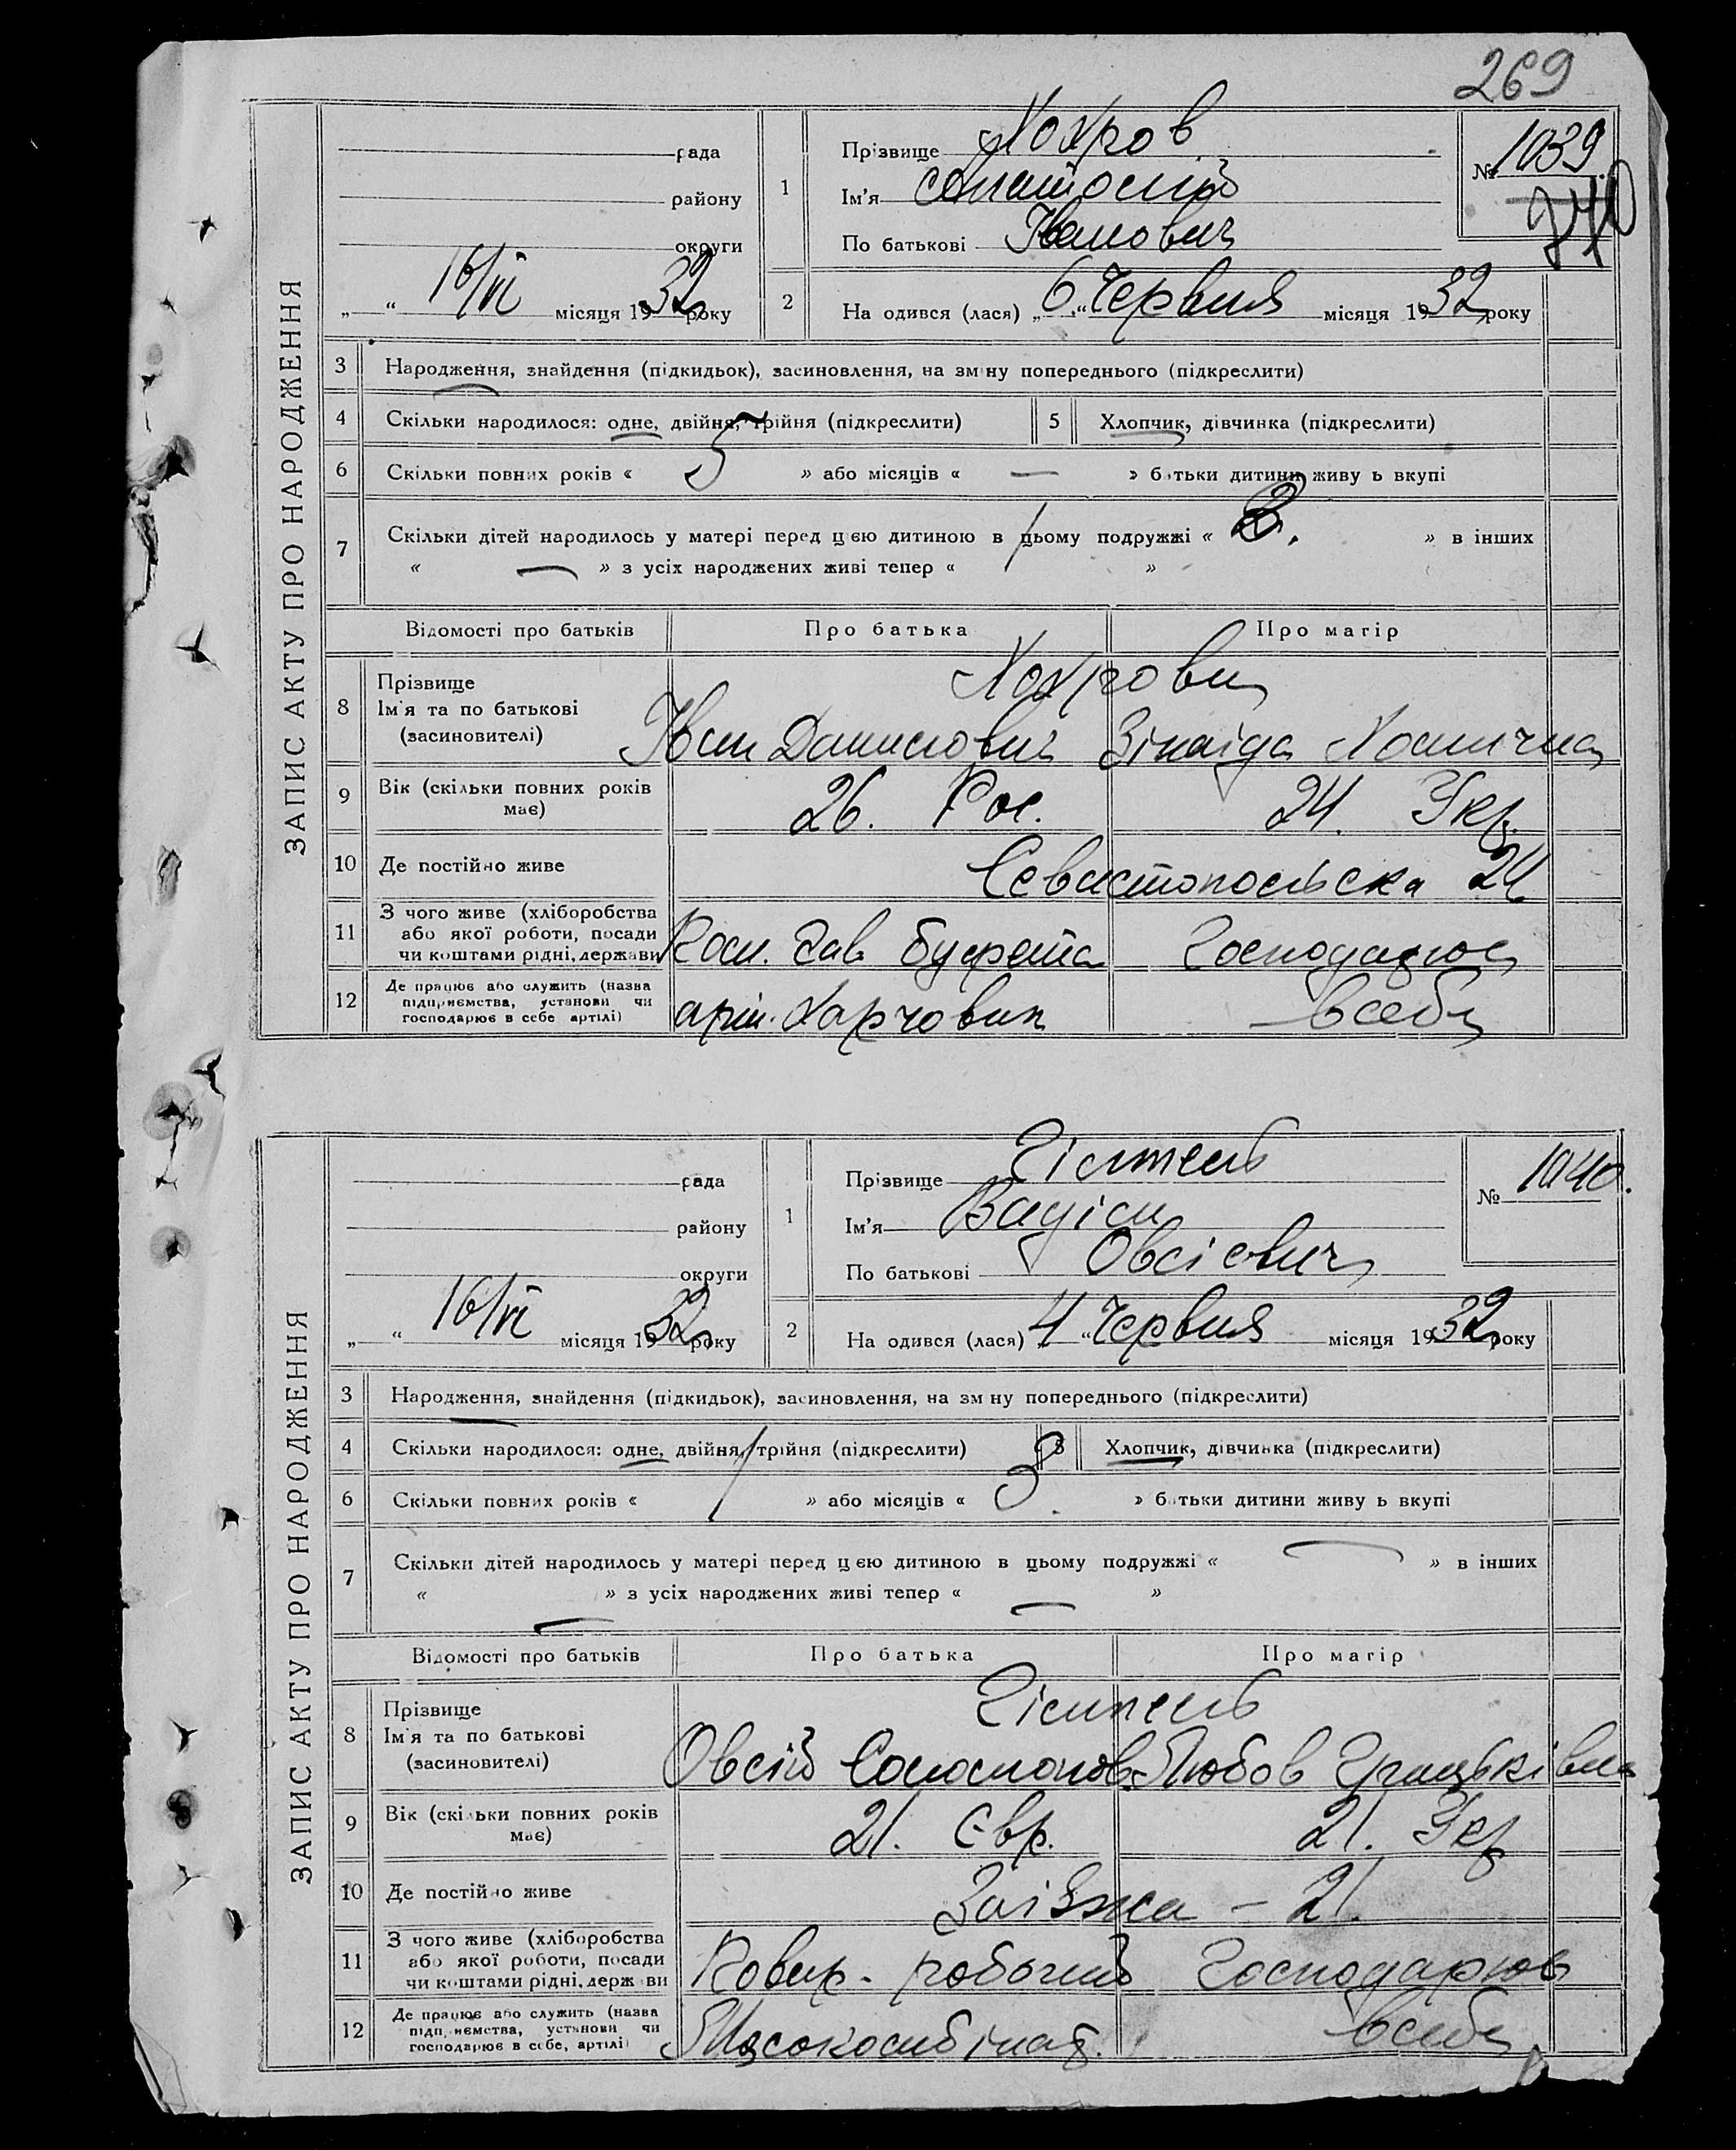 269
ЗАПИС АКТУ ПРО НАРОДЖЕННЯ
рада
району
округи
„ “ 16/VI місяця 1932 року
1
Прізвище Хохров
Ім'я Анатолій
По батькові Іванович
№ 1039
2 На одився (лася) „6“ Червня місяця 1932 року
3 Народження, знайдення (підкидьок), засиновлення, на зм ну попереднього (підкреслити)
4 Скільки народилося: одне, двійня, трійня (підкреслити) 5 Хлопчик, дівчинка (підкреслити)
6 Скільки повних років « 5 » або місяців « — » батьки дитини живу ь вкупі
7 Скільки дітей народилось у матері перед цією дитиною в цьому подружжі « 2. » в інших
« — » з усіх народжених живі тепер « »
Відомості про батьків Про батька Про матір
8 Прізвище
Ім'я та по батькові
(засиновителі)
Хохрови
Іван Данилович Зінаїда
9 Вік (скільки повних років має) 26. Рос. 24. Укр.
10 Де постійно живе Севастопольська 24
11 З чого живе (хліборобства або якої роботи, посади чи коштами рідні, держави Зав. буфета Господарює
12 Де працює або служить (назва підприємства, установи чи господарює в себе артілі) Харчовик в себе
ЗАПИС АКТУ ПРО НАРОДЖЕННЯ
рада
району
округи
„ “ 16/VI місяця 1932 року
1
Прізвище
Ім'я Вадім
По батькові Овсієвич
№ 1040.
2 На одився (лася) „4“ Червня місяця 1932 року
3 Народження, знайдення (підкидьок), засиновлення, на зм ну попереднього (підкреслити)
4 Скільки народилося: одне, двійня, трійня (підкреслити) 5 Хлопчик, дівчинка (підкреслити)
6 Скільки повних років « 1 » або місяців « 3. » батьки дитини живу ь вкупі
7 Скільки дітей народилось у матері перед цією дитиною в цьому подружжі « — » в інших
« — » з усіх народжених живі тепер « — »
Відомості про батьків Про батька Про матір
8 Прізвище
Ім'я та по батькові
(засиновителі)
Овсій Соломонов. Любов Грицьківна
9 Вік (скільки повних років має) 21. Євр. 21. Укр
10 Де постійно живе — 21.
11 З чого живе (хліборобства або якої роботи, посади чи коштами рідні, держави робочий Господарює
12 Де працює або служить (назва підприємства, установи чи господарює в себе, артілі) М'ясокомбінат. в себе